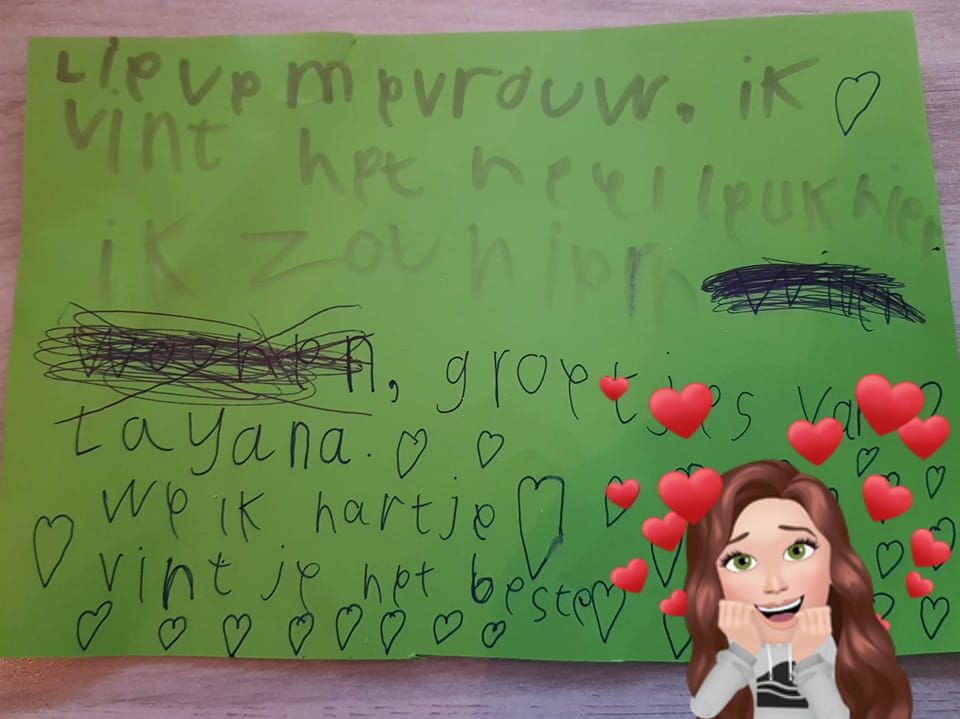 Lieve mevrouw. ik
vint het heel leuk hier
ik zou hier
, groetjes van
tayana.
we ik hartje
vint je het beste